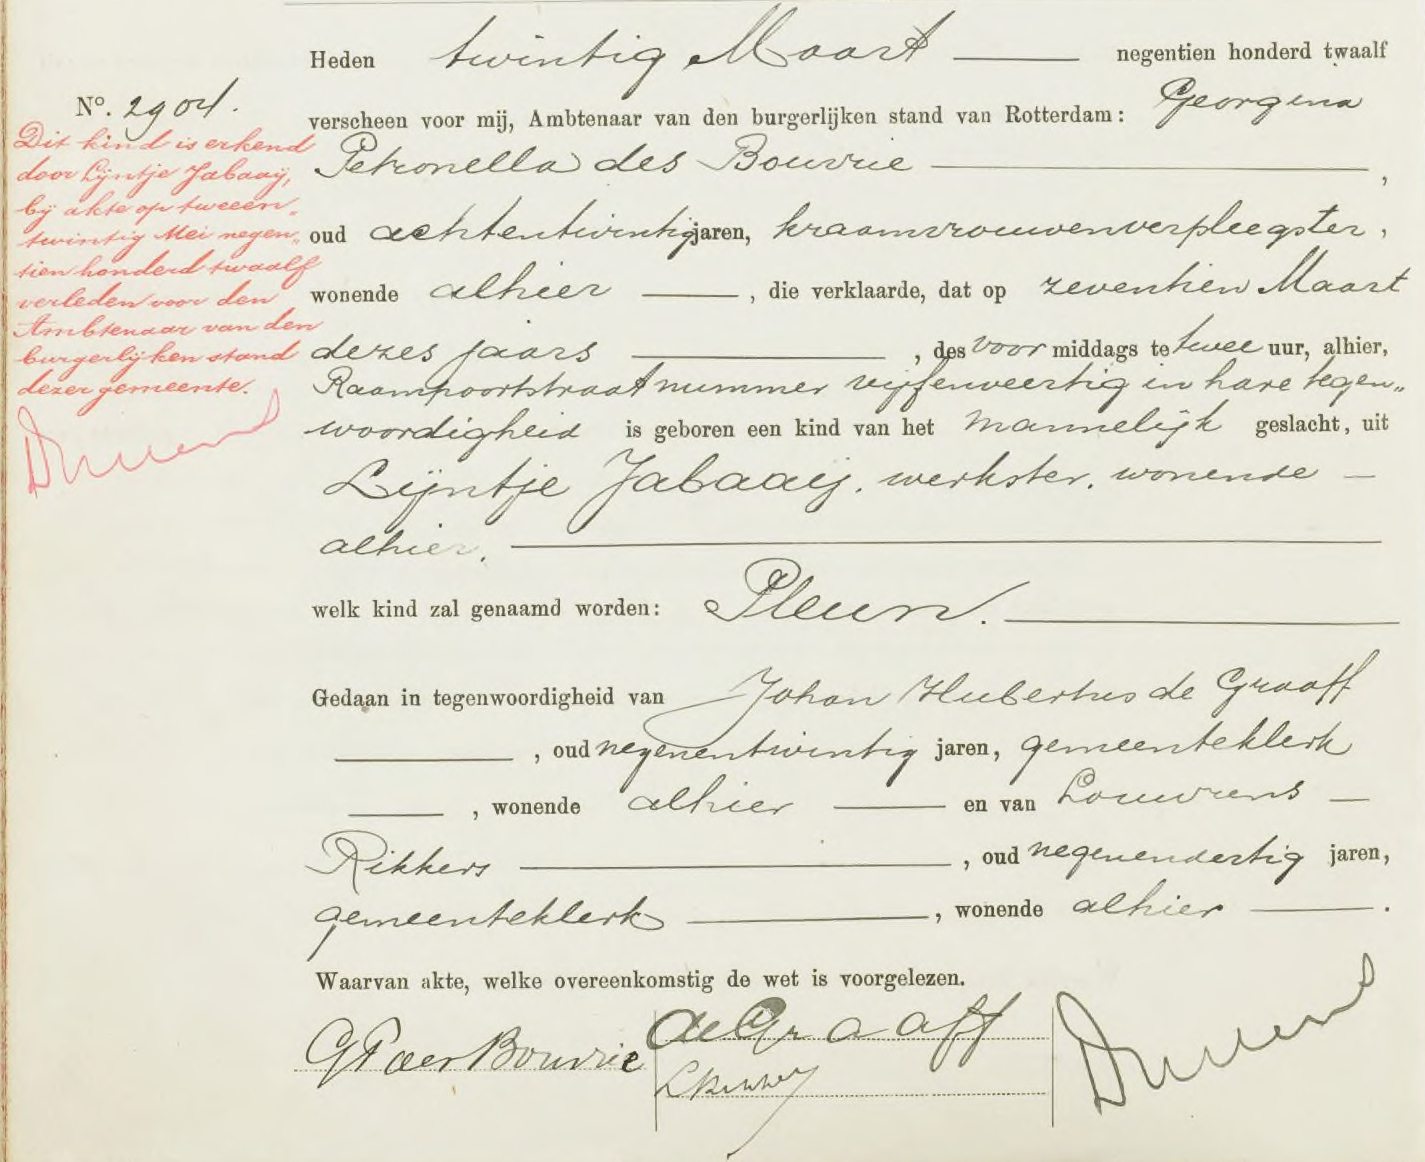 Heden twintig Maart negentien honderd twaalf
No. 2904.
verscheen voor mij, Ambtenaar van den burgerlijken stand van Rotterdam: Georgina
Petronella des Bouvrie ,
oud achtentwintig jaren, kraamvrouwenverpleegster,
wonende alhier , die verklaarde, dat op zeventien Maart
dezes jaars , des voor middags te twee uur, alhier,
Raampoortstraat nummer vijfenveertig in hare tegen„
woordigheid is geboren een kind van het mannelijk geslacht, uit
Lijntje Jabaaij, werkster, wonende
alhier.
welk kind zal genaamd worden: Pleun.
Gedaan in tegenwoordigheid van Johan Hubertus de Graaff
, oud negenentwintig jaren, gemeenteklerk
, wonende alhier en van Louwrens
Rikkers , oud negenendertig jaren,
gemeenteklerk , wonende alhier .
Waarvan akte, welke overeenkomstig de wet is voorgelezen.
GP des Bouvrie
de Graaff
Dit kind is erkend
door Lijntje Jabaaij,
bij akte op tweeën„
twintig Mei negen„
tien honderd twaalf
verleden voor den
Ambtenaar van den
burgerlijken stand
dezer gemeente.